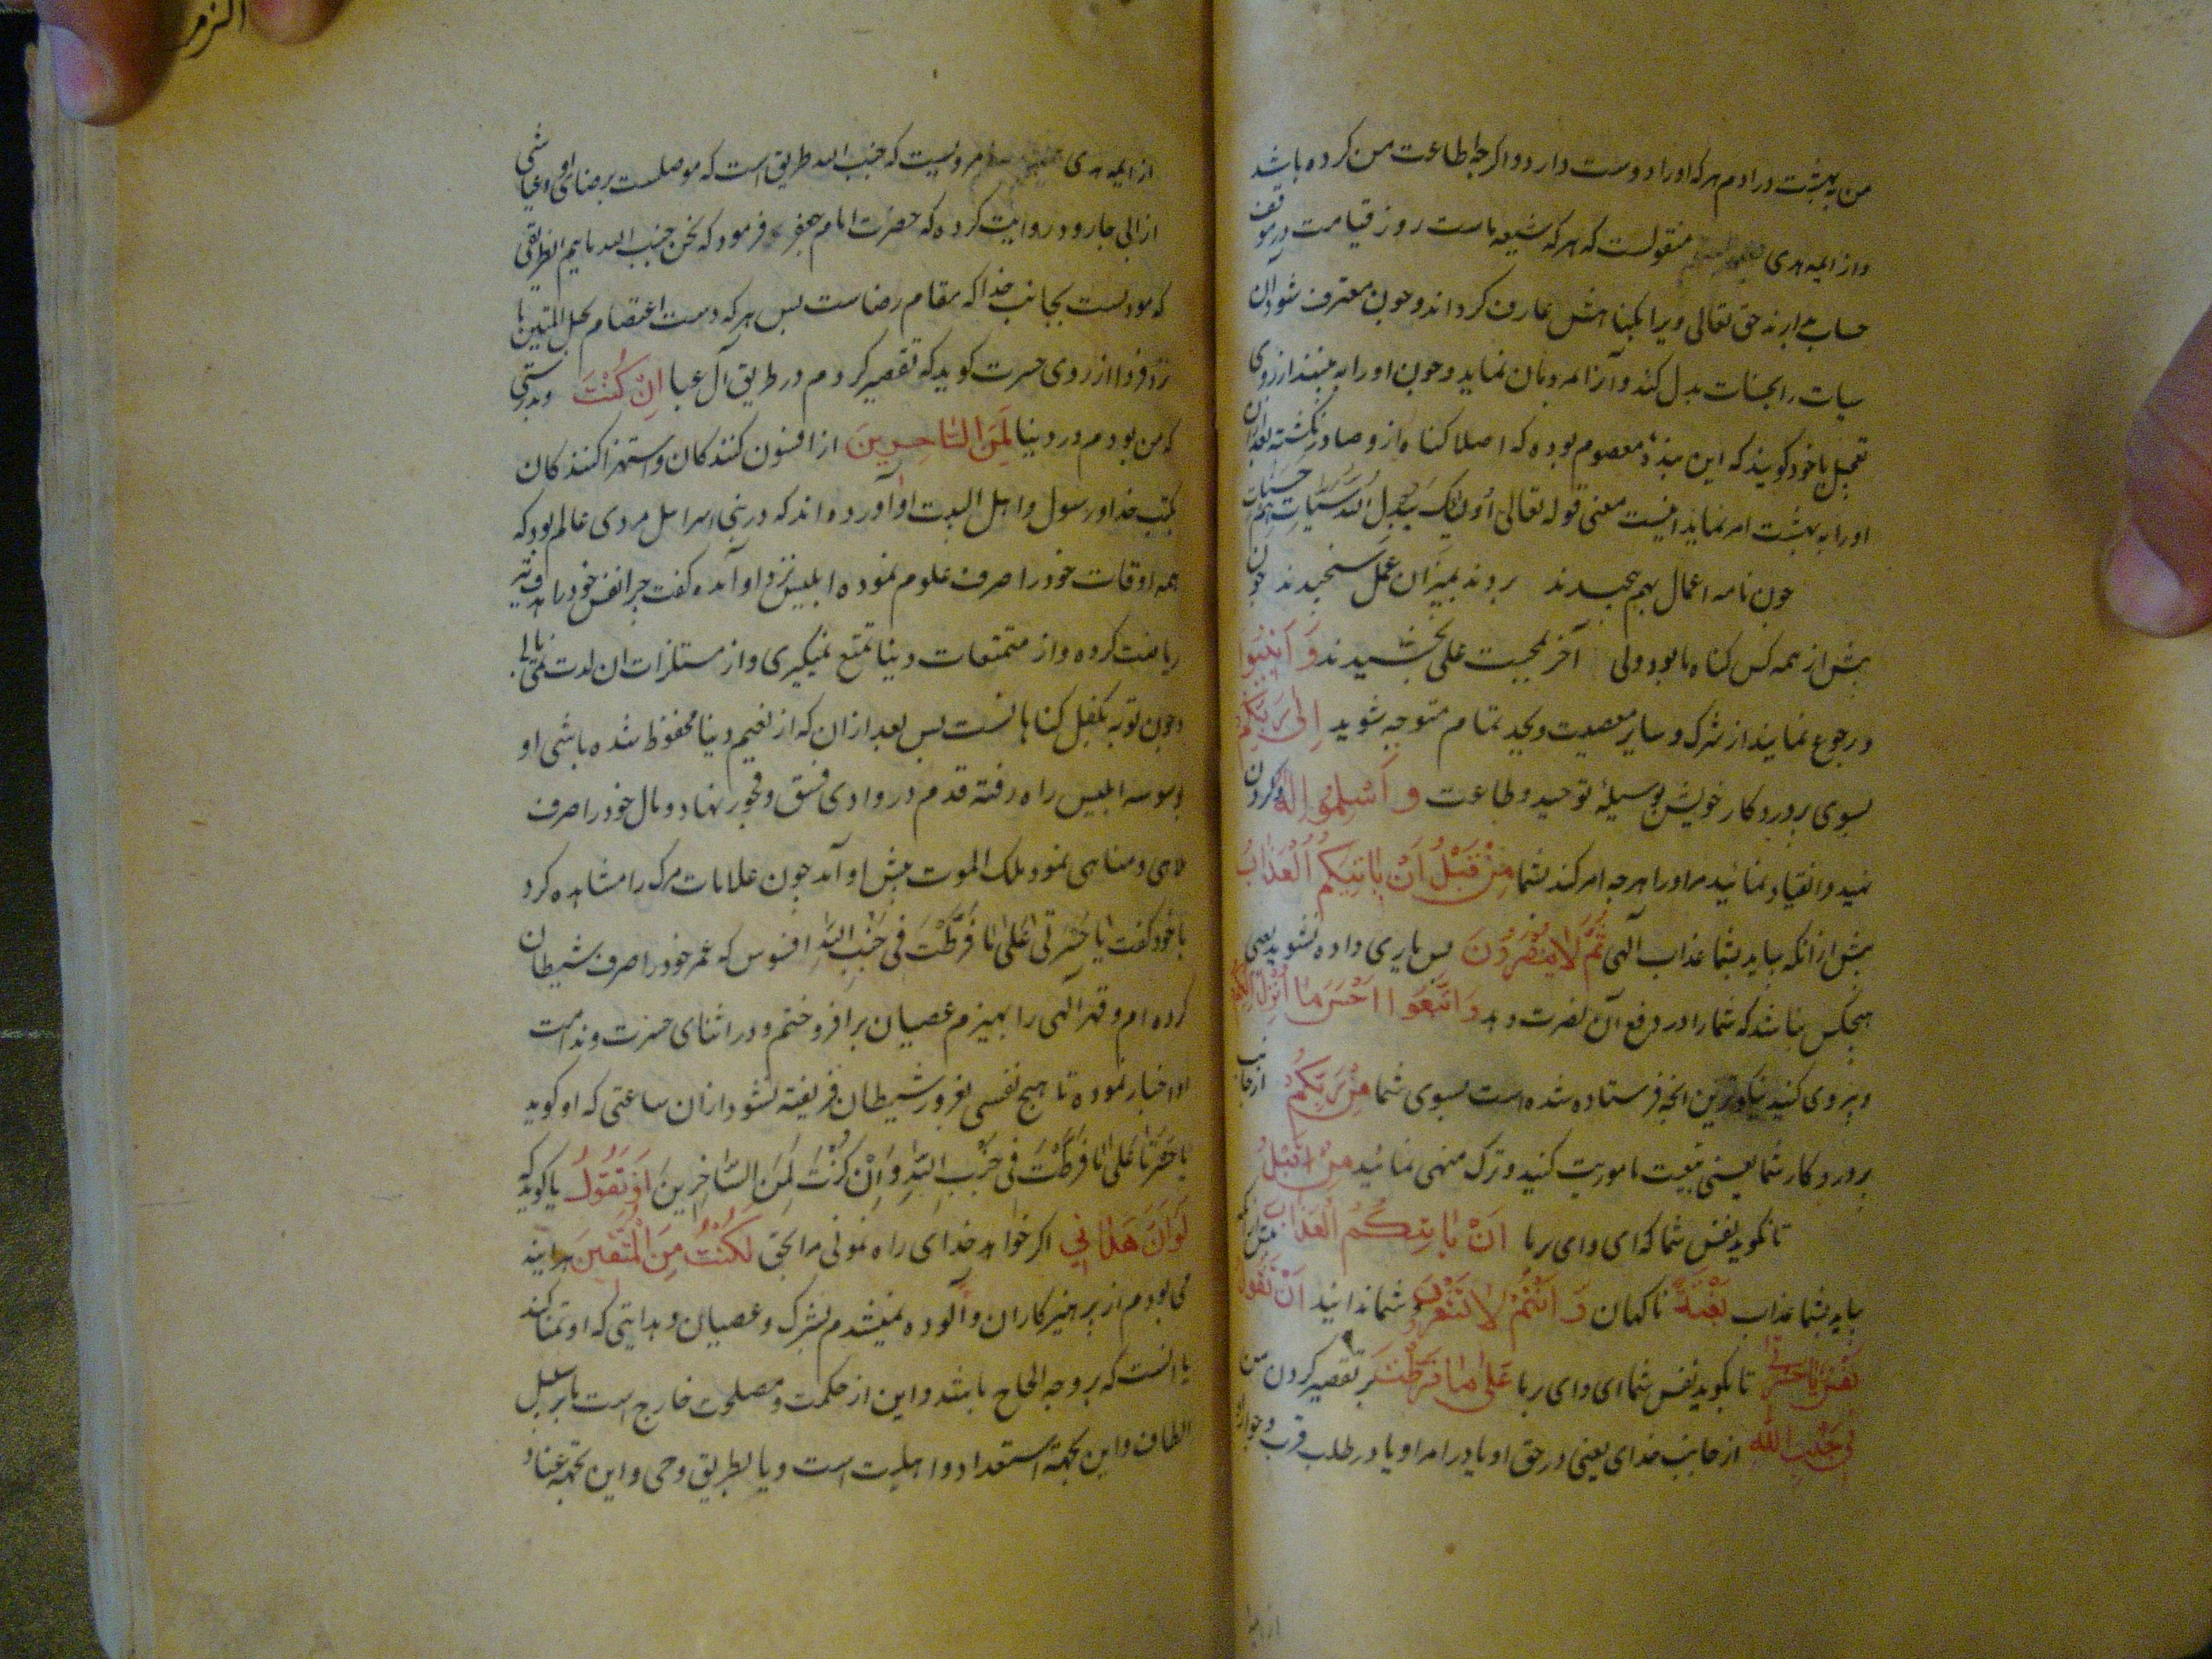 من به بهشت درارم هر که اورا دوست دارد و اکر چه اطاعت من کرده باشد
واز ایمه هدی منقولست که هر که شیعه ماست روز قیامت در موقف
حساب بدارند حق تعالی ویرا بکناهش عارف کرداند و چون معترف شود آن
سیات را بحسنات بدل کند و آنرا بمردمان نماید و چون اورا به بینند از روی
تعجیل با خود کویند که این بنده معصوم بوده که اصلا کناه ازو صادر نکشته بعد ازان
اورا به بهشت امر نماید اینست معنی قوله تعالی اولئک یبدل الله سیاتهم حسنات
چون نامه اعمال بهم پیچیدند بردند بمیزان عمل سنجیدند چون
بیش از همه کس کناه ما بود ولی آخر بمحبت علی بخشیدند وَاَنِیبُوا
و رجوع نمایند از شرک و سایر معصیت و بجد تمام متوجه شوید اِلٰی رَبِّکُمْ
بسوی پروردکار خویش بوسیلهٔ توحید و طاعت وَاَسْلِمُوا لَهُ و کردن
نهید و انقیاد نمائید مر اورا هر چه امر کند بشما مِنْ قَبْلُ اَنْ یَاْتِیَکُمُ الْعَذَابُ
پیش از انکه بیاید بشما عذاب آلهی ثُمَّ لَا یُنْصَرُونَ پس یاری داده نشوید یعنی
هیچکس نباشد که شمارا در دفع آن نصرت دهد وَاتَّبِعُوا اَحْسَنَ مَا اُنْزِلَ اِلَیْکُمْ
و پیروی کنید نیکوترین انچه فرستاده شده است بسوی شما مِنْ رَبِّکُمْ از جانب
پروردکار شما یعنی تبعیت ماموریت کنید و ترک منهی نمائید مِنْ قَبْلُ
تا نکوید نفس شما که ای وای بر ما اَنْ یَاْتِیَکُمُ الْعَذَابُ پیش از انکه
بیاید بشما عذاب بَغْتَةً ناکهان وَ اَنْتُمْ لَا تَشْعُرُونَ و شما ندانید اَنْ تَقُولَ
نَفْسٌ یَا حَسْرَتٰی تا بکوید نفس شما ای وای بر ما عَلٰی مَا فَرَّطْتُ بر تقصیر کردن من
فِی جَنْبِ اللّٰهِ از جانب خدای یعنی در حق او یا در امر او یا در طلب قرب و جوار او
الزمر
از ایمه هدی مرویست که جنب الله طریق است که موصلست برضای او و عیاشی
از ابی جارود روایت کرده که حضرت امام جعفر فرمود که نحن جنب الله مائیم آنطریقی
که مودیست بجانب خدا که مقام رضاست پس هر که دست اعتصام بحبل المتین ما
نزند فردا از روی حسرت کوید که تقصیر کردم در طریق آل عبا اِنْ کُنْتُ و بدرستی
که من بودم در دنیا لَمِنَ السَّاخِرِینَ از افسون کنندکان و استهزا کنندکان
بکتب خدا و رسول و اهل البیت او آورده اند که در بنی اسرائیل مردی عالم بود که
همه اوقات خودرا صرف علوم نموده ابلیس نزد او آمده کفت چرا نفس خودرا هدف تیر
ریاضت کرده و از متمتعات دنیا تمتع نمیکیری و از مستلذات ان لذت نمی یابی
و چون توبه مکفل کناهانست پس بعد ازان که از نعیم دنیا محفوظ شده باشی او
بوسوسه ابلیس راه رفته قدم در وادی فسق و فجور نهاد و مال خودرا صرف
ملاهی و مناهی نمود ملک الموت پیش او آمد چون علامات مرک را مشاهده کرد
با خود کفت یا حسرتی علی ما فرطت فی جنب الله افسوس که عمر خودرا صرف شیطان
کرده ام و قهر آلهی را بهیزم عصیان برافروختم و در اثنای حسرت و ندامت
اورا اخبار نموده تا هیچ نفسی بغرور شیطان فریفته نشود ازان ساعتی که او کوید
یا حسرتا علی ما فرطت فی جنب الله و ان کنت لمن الساخرین اَوْ تَقُولَ یا کوید که
لَوْ اَنَّ هَدَانِی اکر خواهد خدای راه نمونی مرا بحق لَکُنْتُ مِنَ الْمُتَّقِینَ هر اینه
می بودم از پرهیزکاران و آلوده نمیشدم بشرک و عصیان و هدایتی که او تمنا کند
یا انست که بر وجه الجاء باشد و این از حکمت و مصلحت خارج است یا بر سبیل
الطاف و این بجهة استعداد و اهلیت است و یا بطریق وحی و این بجهة عناد